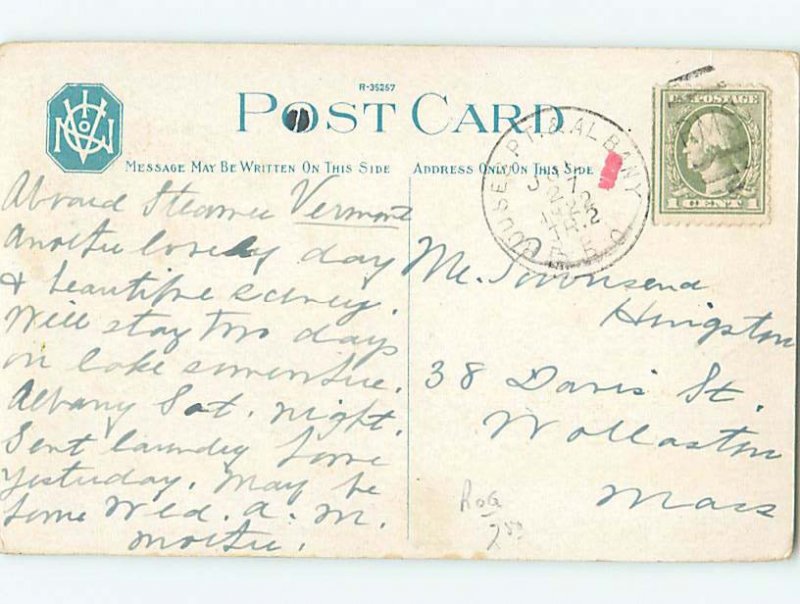 R-35257
POST CARD
MESSAGE MAY BE WRITTEN ON THIS SIDE
ADDRESS ONLY ON THIS SIDE
Aboard Steamer Vermont
Another lovely day
& beautiful scenery.
Will stay two days
on lake somewhere.
Albany Sat. night.
Sent laundry home
yesterday. May be
home Wed. a. m.
Mother.
U.S. POSTAGE
1 CENT
ROUSES PT. & ALBANY
R.P.O.
Mr. Townsend
Hingston
38 Davis St.
Wollaston
Mass